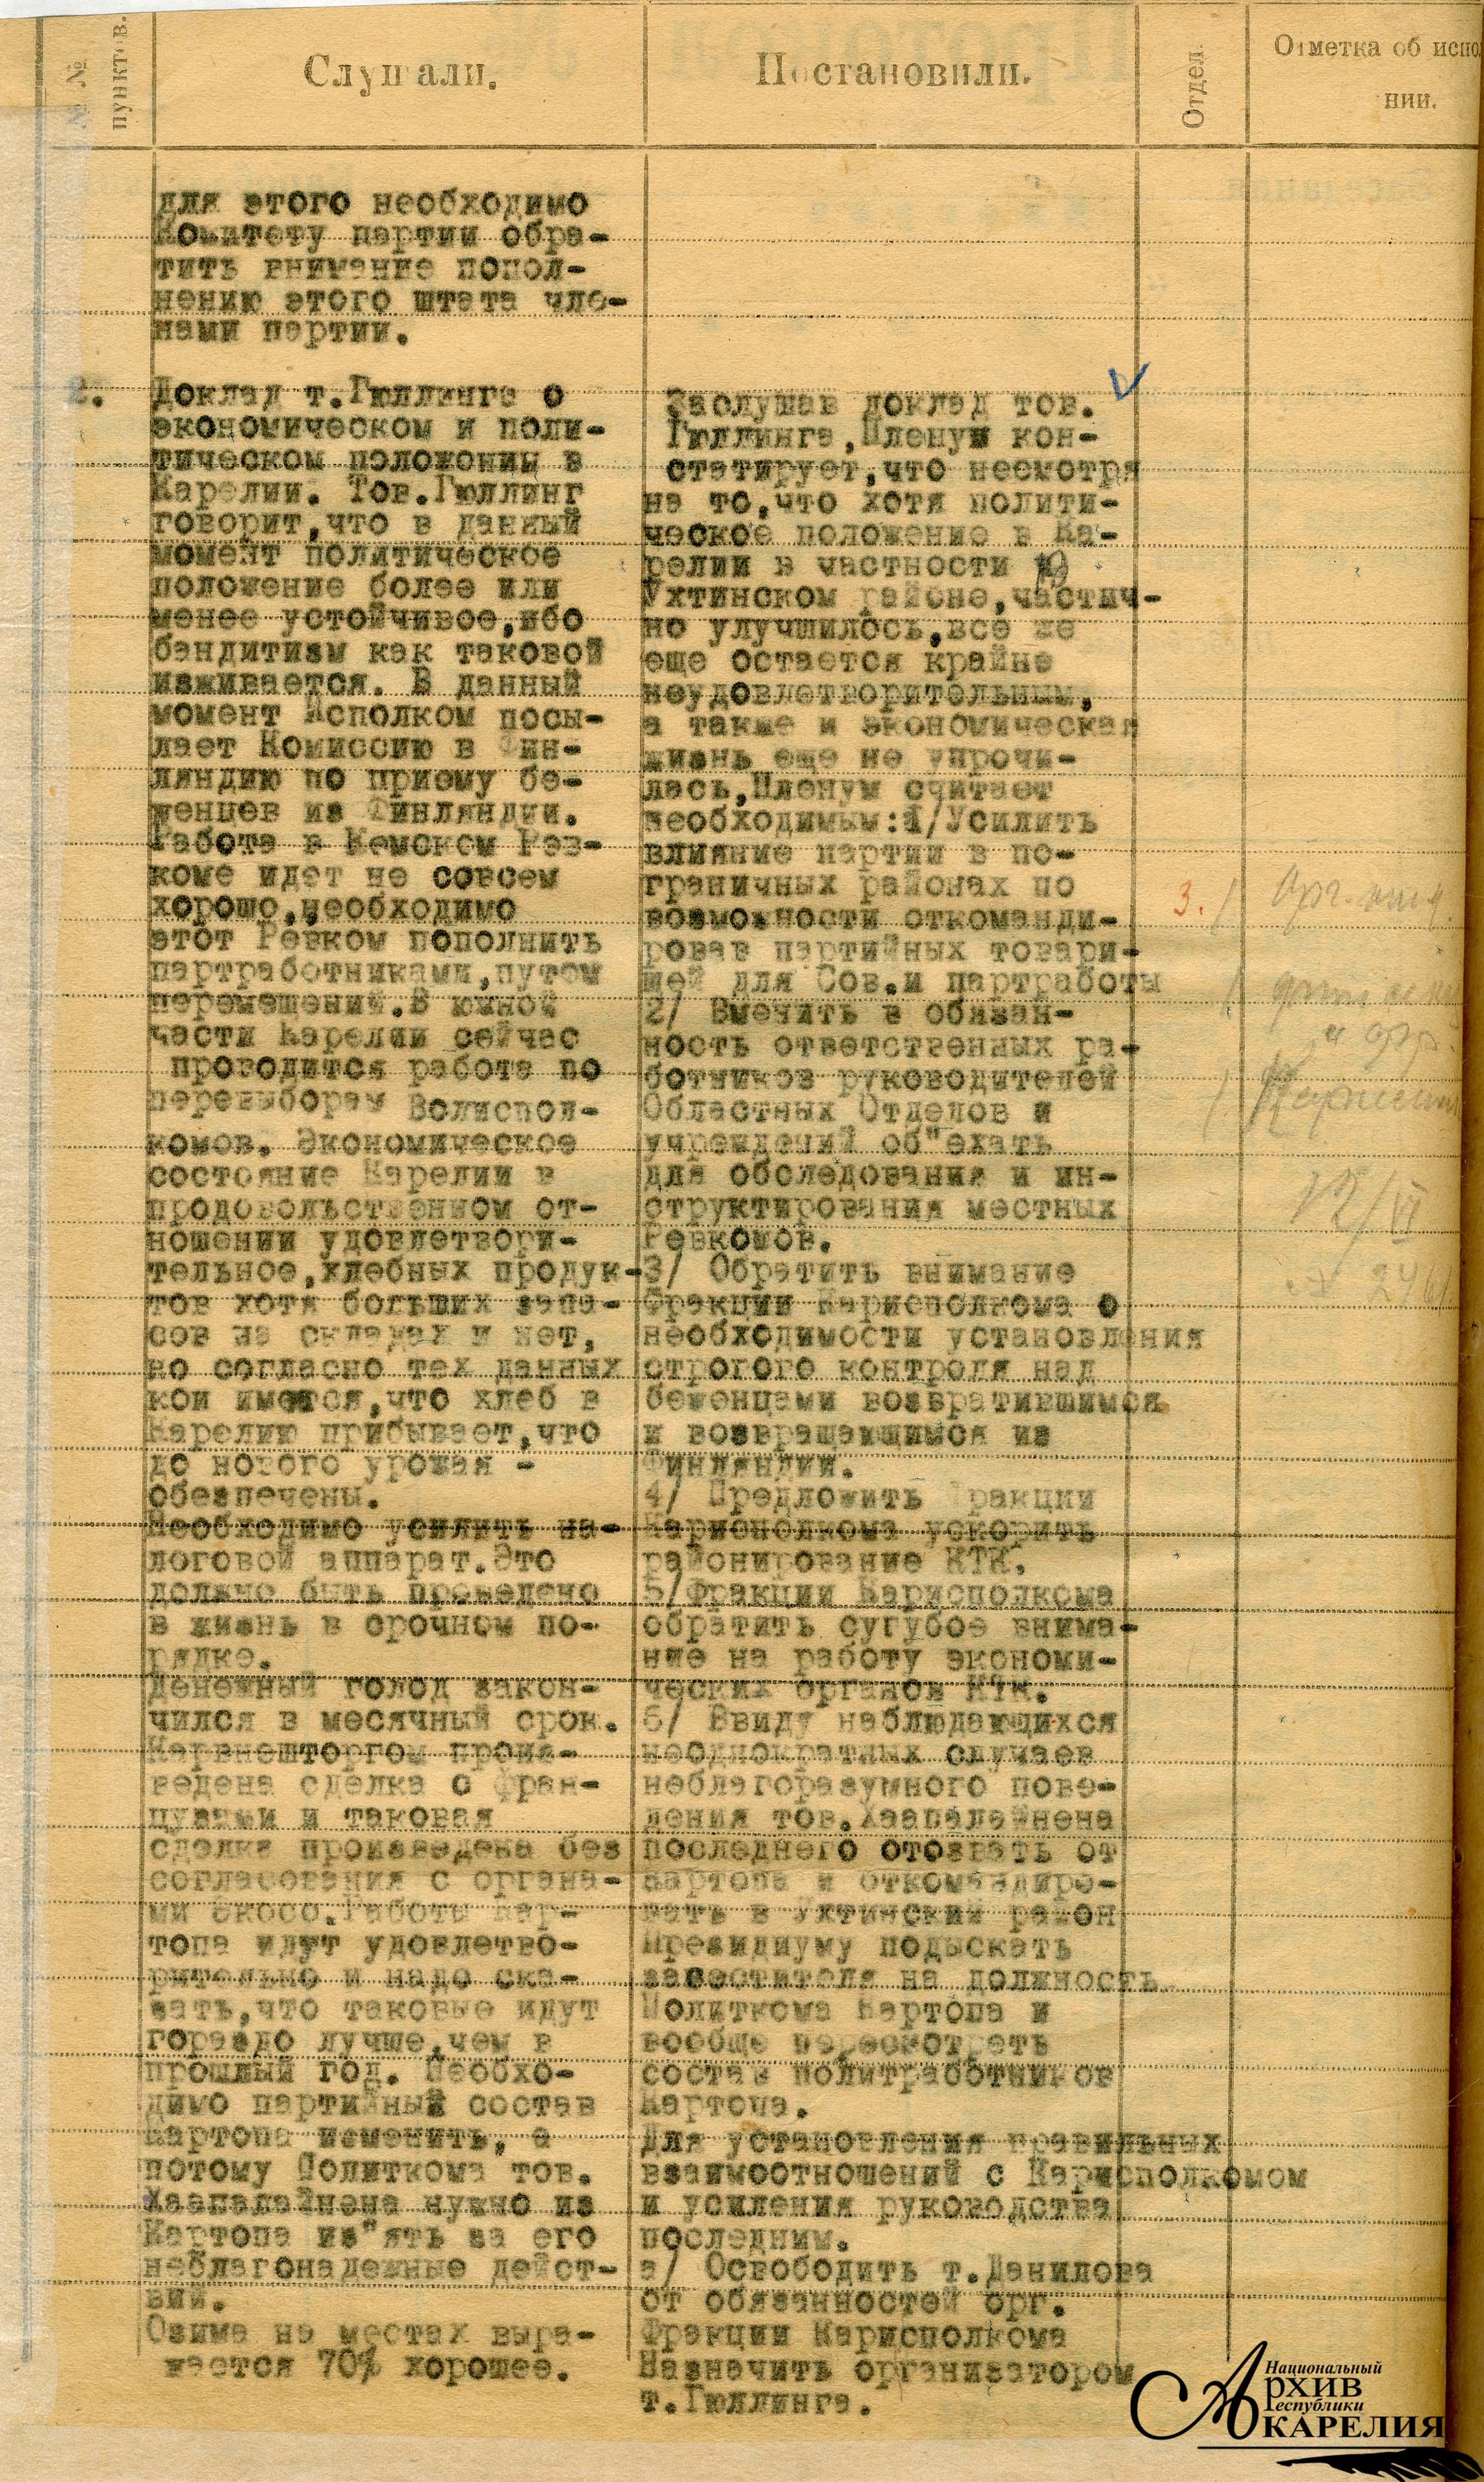 № №
пунктов.
Слушали.
Постановили.
Отдел.
Отметка об испо
нии.
для этого необходимо
Комитету партии обра-
тить внимание попол-
нению этого штата чле-
нами партии.
2.
Доклад т.Гюллинга о
экономическом и поли-
тическом положении в
Карелии. Тов.Гюллинг
говорит,что в данный
момент политическое
положение более или
менее устойчивое,ибо
бандитизм как таковой
изживается. В данный
момент Исполком посы-
лает Комиссию в Фин-
ляндию по приему бе-
женцев из Финляндии.
Работа в Кемском Рев-
коме идет не совсем
хорошо,необходимо
этот Ревком пополнить
партработниками,путем
перемещений.В южной
части Карелии сейчас
проводится работа по
перевыборам Волиспол-
комов. Экономическое
состояние Карелии в
продовольственном от-
ношении удовлетвори-
тельное,хлебных продук-
тов хотя больших запа-
сов на складах и нет,
но согласно тех данных
кои имеются,что хлеб в
Карелию прибывает,что
до нового урожая -
обезпечены.
Необходимо усилить на-
логовой аппарат.Это
должно быть проведено
в жизнь в срочном по-
рядке.
Денежный голод закон-
чился в месячный срок.
Карвнешторгом произ-
ведена сделка с фран-
цузами и таковая
сделка произведена без
согласования с органа-
ми Экосо.Работы Кар-
топа идут удовлетво-
рительно и надо ска-
зать,что таковые идут
гораздо лучше,чем в
прошлый год. Необхо-
димо партийный состав
Картопа изменить, а
потому Политкома тов.
Хаапалайнена нужно из
Картопа из"ять за его
неблагонадежные дейст-
вия.
Озимь на местах выра-
жается 70% хорошее.
Заслушав доклад тов.
Гюллинга,Пленум кон-
статирует,что несмотря
на то,что хотя полити-
ческое положение в Ка-
релии в частности в
Ухтинском районе,частич-
но улучшилось,все же
еще остается крайне
неудовлетворительным,
а также и экономическая
жизнь еще не упрочи-
лась,Пленум считает
необходимым:1/Усилить
влияние партии в по-
граничных районах по
возможности откоманди-
ровав партийных товари-
щей для Сов.и партработы
2/ Вменить в обязан-
ность ответственных ра-
ботников руководителей
Областных Отделов и
учреждений об"ехать
для обследования и ин-
структирования местных
Ревкомов.
3/ Обратить внимание
Фракции Карисполкома о
необходимости установления
строгого контроля над
беженцами возвратившимся
и возвращающимся из
Финляндии.
4/ Предложить Фракции
Карисполкома ускорить
районирование КТК.
5/Фракции Карисполкома
обратить сугубое внима-
ние на работу экономи-
ческих органов КТК.
6/ Ввиду наблюдающихся
неоднократных случаев
неблагоразумного пове-
дения тов.Хаапалайнена
последнего отозвать от
Картопа и откомандиро-
вать в Ухтинский район
Президиуму подыскать
заместителя на должность
Политкома Картопа и
вообще пересмотреть
состав политработников
Картопа.
Для установления правильных
взаимоотношений с Карисполкомом
и усиления руководства
последним.
а/ Освободить т.Данилова
от обязанностей орг.
Фракции Карисполкома
Назначить организатором
т.Гюллинга.
3./
12/VI
Национальный
Архив
Республики
Карелия